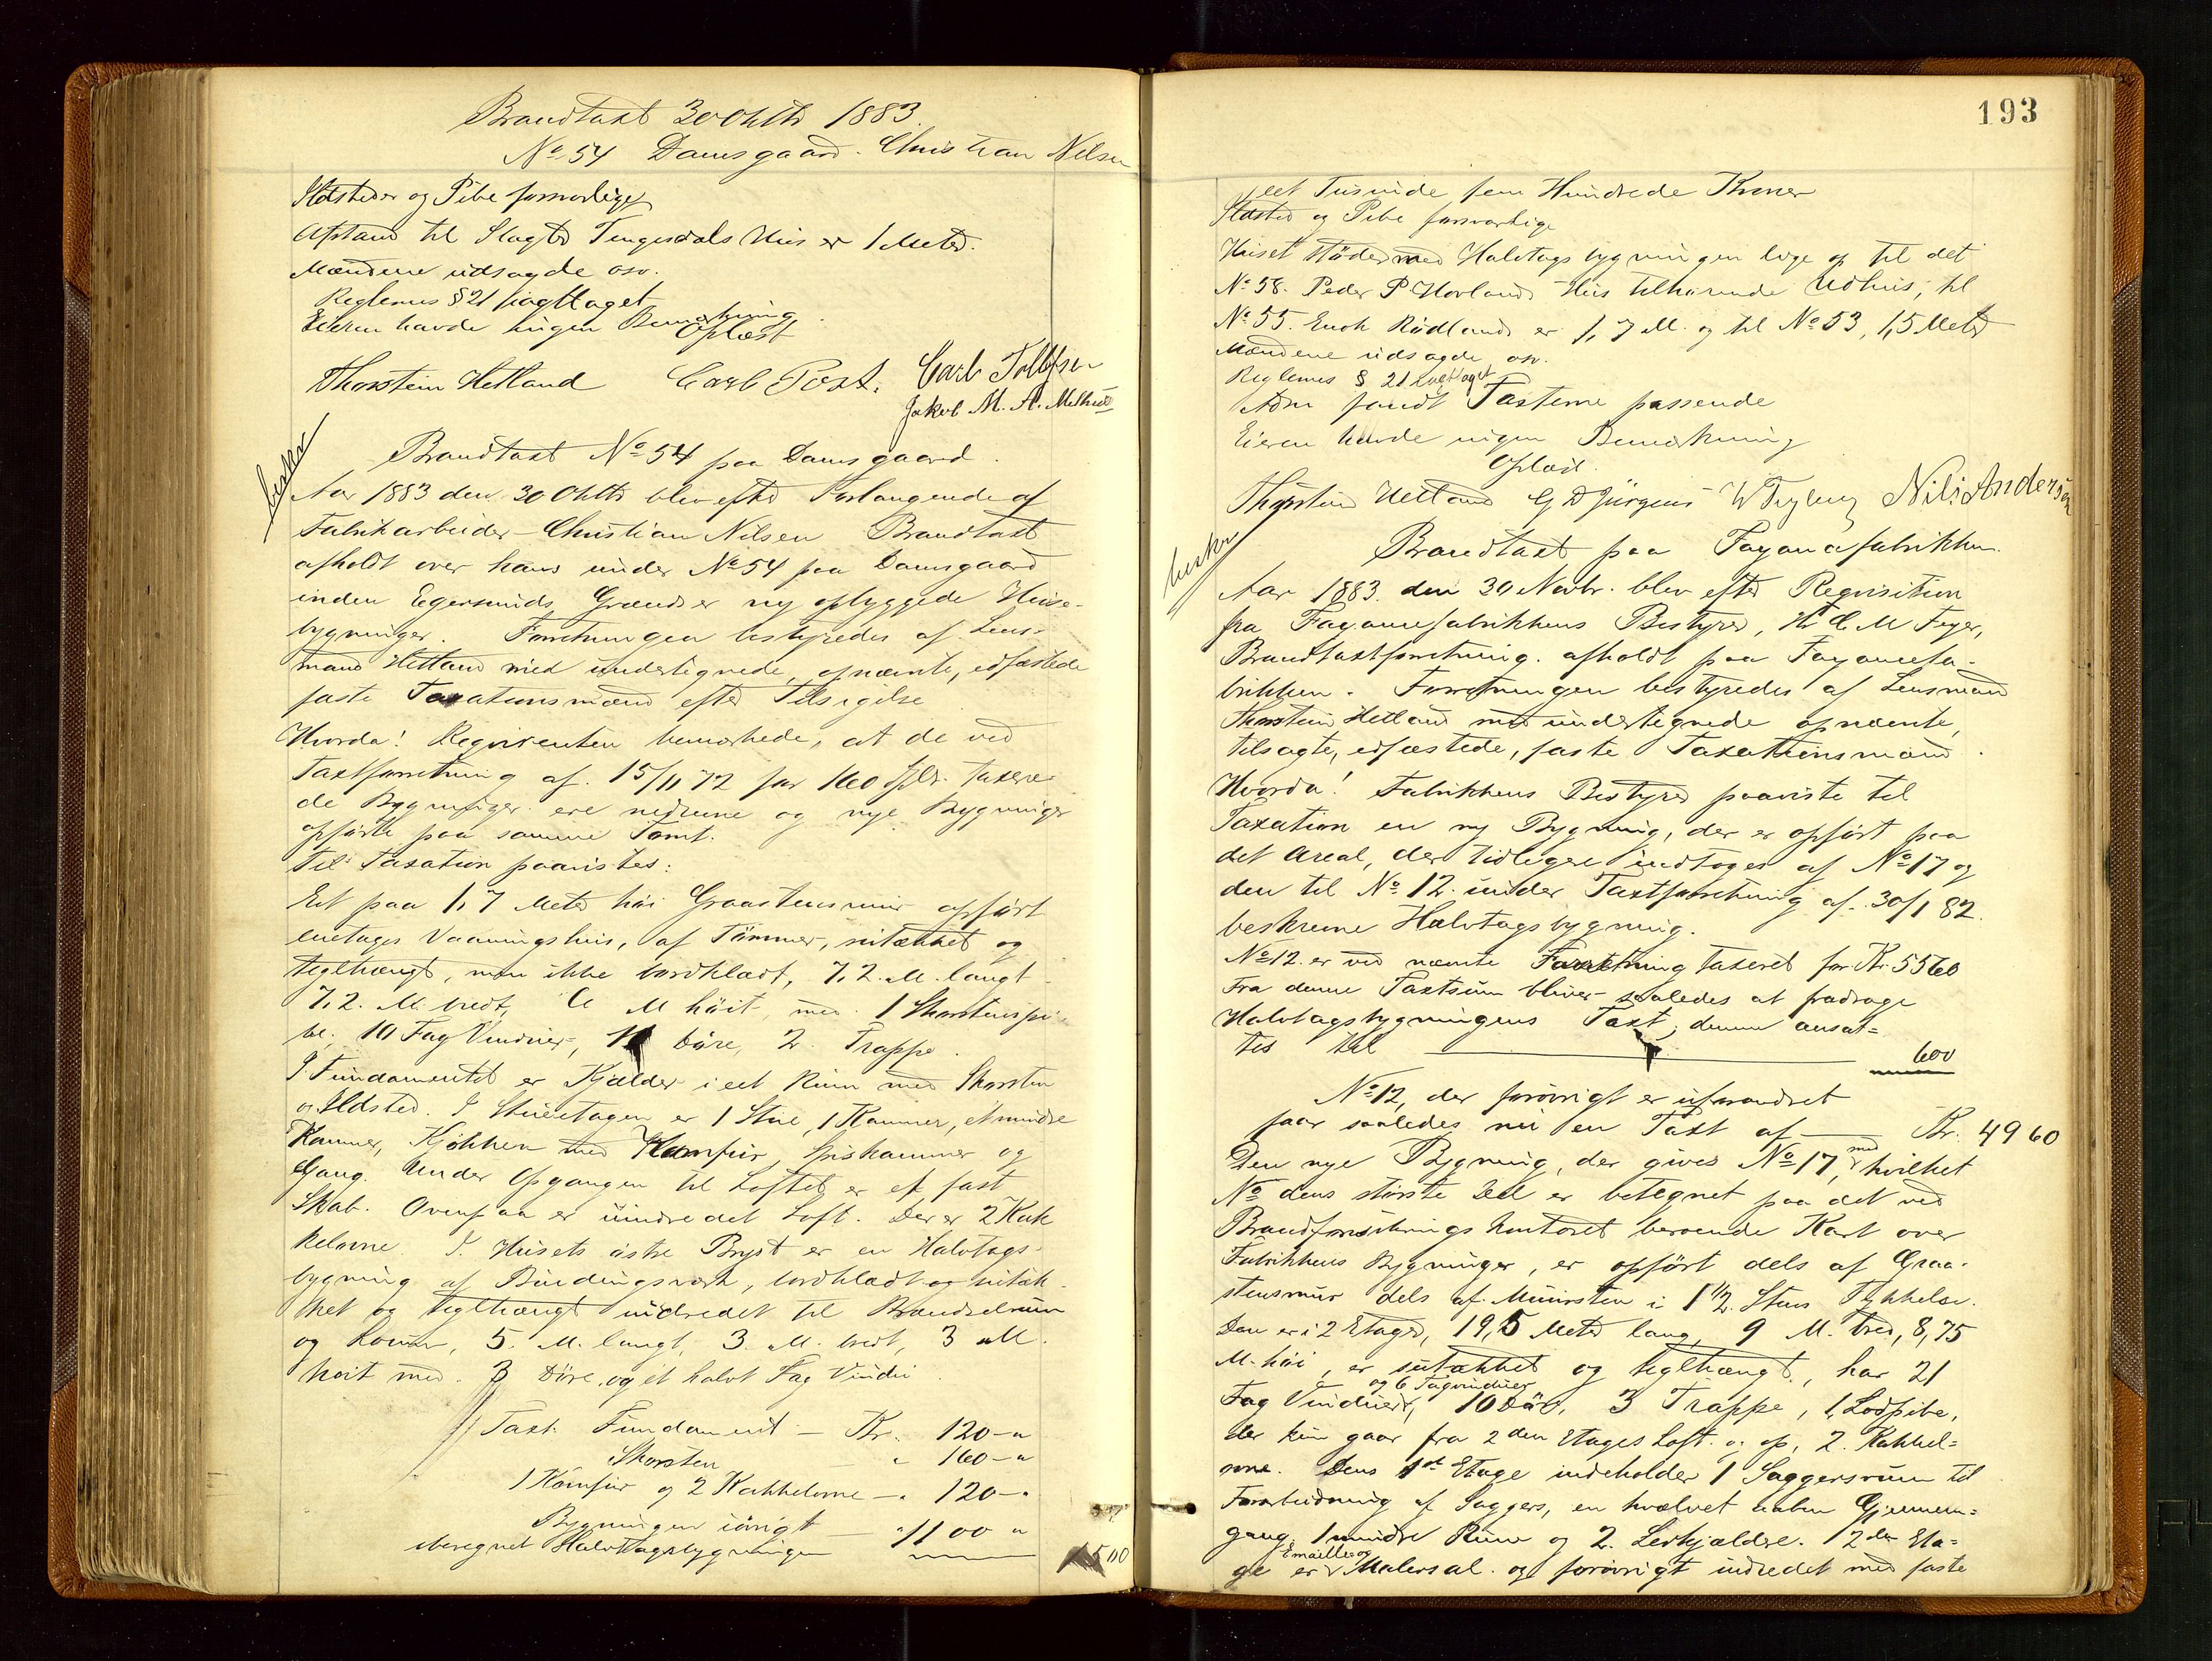 Brandtaxt 30 Oktbr 1883.
No 54 Damsgaard. Christian Nilsen
Ildsteder og Pibe forsvarlige
Afstand til Slagter Tengesdals Huus er 1 Meter.
Mændene udsagde osv.
Reglernes § 21 iagttaget
Eieren havde ingen Bemærkning
Oplæst
Thorstein Hetland Carl Post. Carl Tollefsen
Jakob M. A. Melhus
beskr
Brandtaxt No 54 paa Damsgaard.
Aar 1883 den 30 Oktbr blev efter Forlangende af
Fabrikarbeider Christian Nilsen Brandtaxt
afholdt over hans under No 54 paa Damsgaard
inden Egersunds Grændser ny opbyggede Huse-
bygninger. Forretningen bestyredes af Lens-
mand Hetland med undertegnede, opnævnte, edfæstede
faste Taxationsmænd efter Tilsigelse
Hvorda! Reqvirenten bemærkede, at de ved
Taxtforretning af 15/11 72 for 160 Spdlr. taxere-
de Bygninger ere nedrevne og nye Bygninger
opførte paa samme Tomt.
Til Taxation paavistes:
Et paa 1,7 Meter høi Graastensmur opført
enetages Vaaningshuus, af Tømmer, sutækket og
teglhængt, men ikke bordklædt, 7,2 M. langt
7,2. M. bredt, 6 M høit, med 1 Skorstenspi-
be, 10 Fag Vinduer, 11 Døre, 2 Trappe.
I Fundamentet er Kjælder i eet Rum med Skorsten
og Ildsted. I Stueetagen er 1 Stue, 1 Kammer, et mindre
Kammer, Kjøkken med Komfur, Spiskammer og
Gang. Under Opgangen til Loftet er et fast
Skab. Ovenpaa er uindredet Loft. Der er 2 Kak
kelovne. I Husets østre Bryst er en Halvtags-
bygning af Bindingsværk, bordklædt og sutæk-
ket og teglhængt indredet til Brændselrum
og Lokum, 5. M. langt, 3. M. bredt, 3 M.
høit med 3 Døre og et halvt Fag Vindu.
Taxt. Fundament - Kr. 120 - "
Skorsten " 160 - "
1 Komfur og 2 Kakkelovne - " 120 - "
Bygningen iøvrigt " 1100 "
iberegnet Halvtagsbygningen
1500
193
eet Tusinde fem Hundrede Kroner
Ildsted og Pibe forsvarlige
Huset støder med Halvtagsbygningen lige op til det
No 58. Peder P. Hovlands Hus tilhørende Udhus, til
No 55. Enok Rødlands er 1,7 M. og til No 53, 1,5 Meter
Mændene udsagde osv.
Reglernes § 21 iagttaget
Adm fandt Taxterne passende
Eieren havde ingen Bemærkning
Oplæst.
Thorstein Hetland G D Jürgens W Fugleng Nils Andersen
beskr
Brandtaxt paa Fayancefabrikken.
Aar 1883 den 30 Novbr. blev efter Reqvisition
fra Fayancefabrikkens Bestyrer, Hr C. M Feyer,
Brandtaxtforretning afholdt paa Fayancefa-
brikken. Forretningen bestyredes af Lensmand
Thorstein Hetland med undertegnede opnævnte,
tilsagte, edfæstede, faste Taxationsmænd.
Hvorda! Fabrikkens Bestyrer paaviste til
Taxation en ny Bygning, der er opført paa
det Areal, der tidligere indtoges af No 17 og
den til No 12 under Taxtforretning af 30/1 82
beskrevne Halvtagsbygning.
No 12 er ved nævnte Forretning taxeret for Kr. 5560
Fra denne Taxtsum bliver saaledes at fradrage
Halvtagsbygningens Taxt; denne ansat=
tes til 600
No 12, der forøvrigt er uforandret
faar saaledes nu en Taxt af Kr. 4960
Den nye Bygning, der gives No 17, med hvilket
No dens største Del er betegnet paa det ved
Brandforsikringskontoret beroende Kart over
Fabrikkens Bygninger, er opført dels af Graa-
stensmur dels af Mursten i 1 1/2 Stens Tykkelse.
Den er i 2 Etager, 19,5 Meter lang, 9 M. bred, 8,75
M. høi, er sutækket og teglhængt, har 21
og 6 Tagvinduer
Fag Vinduer, 10 Dør, 3 Trappe, 1 Lodpibe,
der kun gaar fra 2den Etages Loft og op, 2 Kakkel=
ovne. Dens 1st Etage indeholder 1 Saggersrum til
Forarbeidning af Saggers, en hvælvet aaben Gjennem=
gang, 1 mindre Rum og 2. Lerkjældre. I 2den Eta=
Emaille og
ge er Malersal og forøvrigt indredet med faste